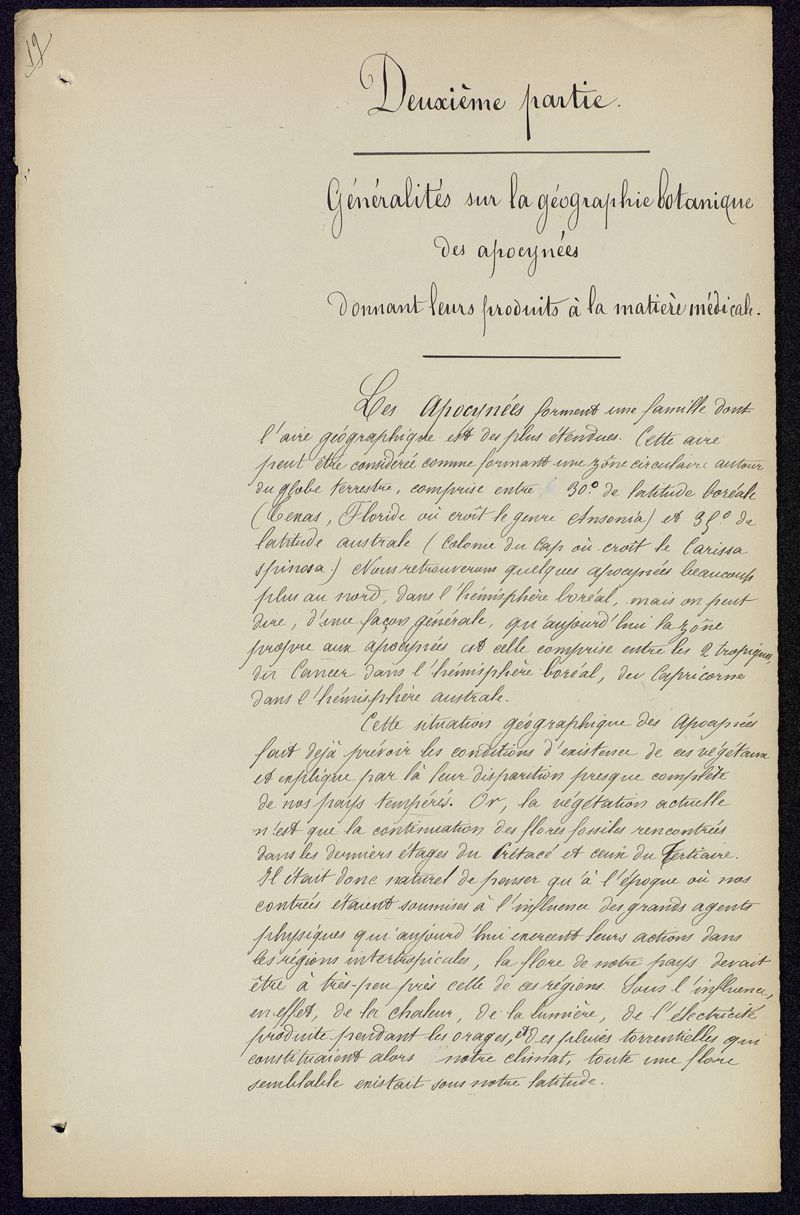 19
Deuxième partie.
Généralités sur la géographie botanique
des apocynées
donnant leurs produits à la matière médicale.
Les Apocynées forment une famille dont
l'aire géographique est des plus étendues. Cette aire
peut être considérée comme formant une zône circulaire autour
du globe terrestre, comprise entre 30° de latitude boréale
(Texas, Floride où croît le genre Amsonia) et 35° de
latitude australe (Colonie du Cap où croît le Carissa
spinosa.) Nous retrouverons quelques apocynées beaucoup
plus au nord, dans l'hémisphère boréal, mais on peut
dire, d'une façon générale, qu'aujourd'hui la zône
propre aux apocynées est celle comprise entre les 2 tropiques,
du Cancer dans l'hémisphère boréal, du Capricorne
dans l'hémisphère australe.
Cette situation géographique des Apocynées
fait déjà prévoir les conditions d'existence de ces végétaux
et explique par là leur disparition presque complète
de nos pays tempérés. Or, la végétation actuelle
n'est que la continuation des flores fossiles rencontrées
dans les derniers étages du Crétacé et ceux du Tertiaire.
Il était donc naturel de penser qu'à l'époque où nos
contrées étaient soumises à l'influence des grands agents
physiques qui aujourd'hui exercent leurs actions dans
les régions intertropicales, la flore de notre pays devait
être à très-peu près celle de ces régions. Sous l'influence,
en effet, de la chaleur, de la lumière, de l'électricité
produite pendant les orages, et des pluies torrentielles qui
constituaient alors notre climat, toute une flore
semblable existait sous notre latitude.